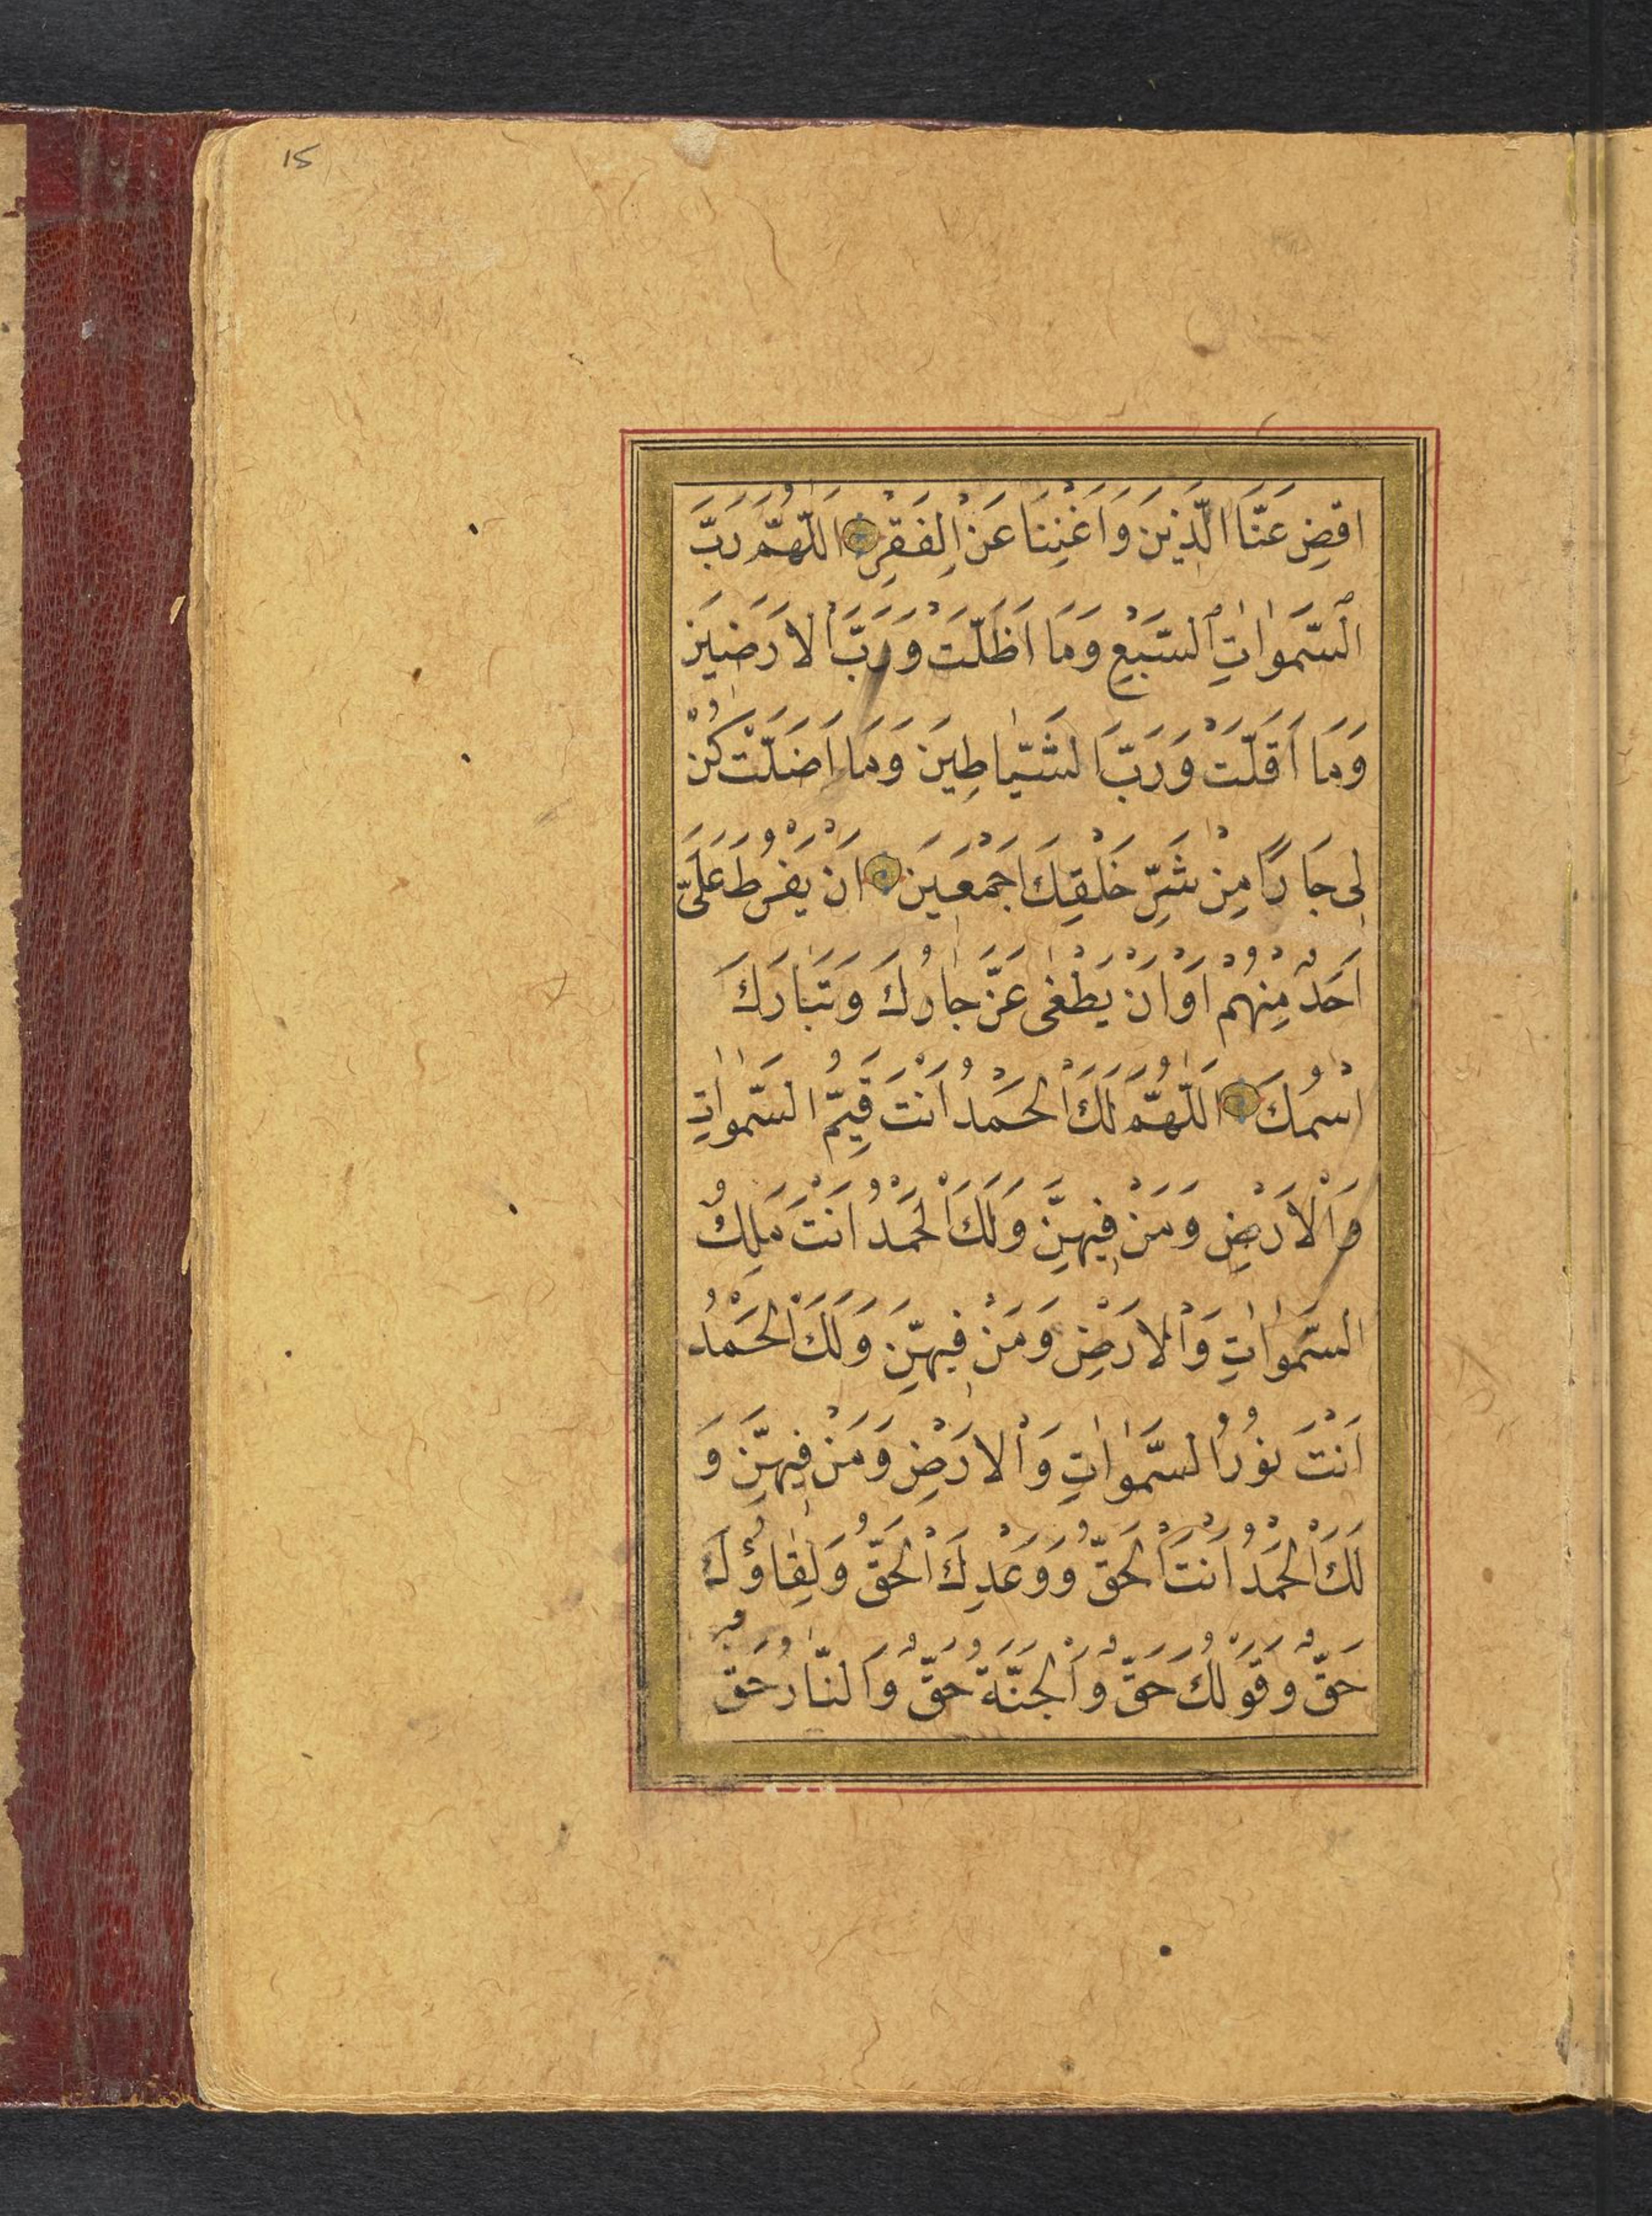 15
اقضِ عَنَّا الَّذِينَ وَاَغْنِنَا عَنْ الِفَقْرِ اَللّٰهُمَّ رَبَّ
السَّمٰوٰاتِ السَّبْعِ وَمَا اَظَلَّتْ وَرَبَّ الْاَرَضِينَ
وَمَا اَقَلَّتْ وَرَبَّ الشَّيٰاطِينَ وَمَا اَضَلَّتْ كُنْ
لِى جَارًا مِنْ شَرِّ خَلْقِكَ اَجْمَعِينَ اَنْ يَفْرُطَ عَلَىَّ
اَحَدٌ مِنْهُمْ اَوْ اَنْ يَطْغٰى عَزَّ جٰارُكَ وَتَبٰارَكَ
اسْمُكَ اَللّٰهُمَّ لَكَ الْحَمْدُ اَنْتَ قَيِّمُ السَّمٰوٰاتِ
وَالْاَرْضِ وَمَنْ فِيهِنَّ وَلَكَ الْحَمْدُ اَنْتَ مَلِكُ
السَّمٰوٰاتِ وَالْاَرْضِ وَمَنْ فِيهِنَّ وَلَكَ الْحَمْدُ
اَنْتَ نُورُ السَّمٰوٰاتِ وَالْاَرْضِ وَمَنْ فِيهِنَّ وَ
لَكَ الْحَمْدُ اَنْتَ الْحَقُّ وَوَعْدِكَ الْحَقُّ وَلِقٰاؤُكَ
حَقٌّ وَقَوْلُكَ حَقٌّ وَالْجَنَّةُ حَقٌّ وَالنّٰارُ حَقٌّ